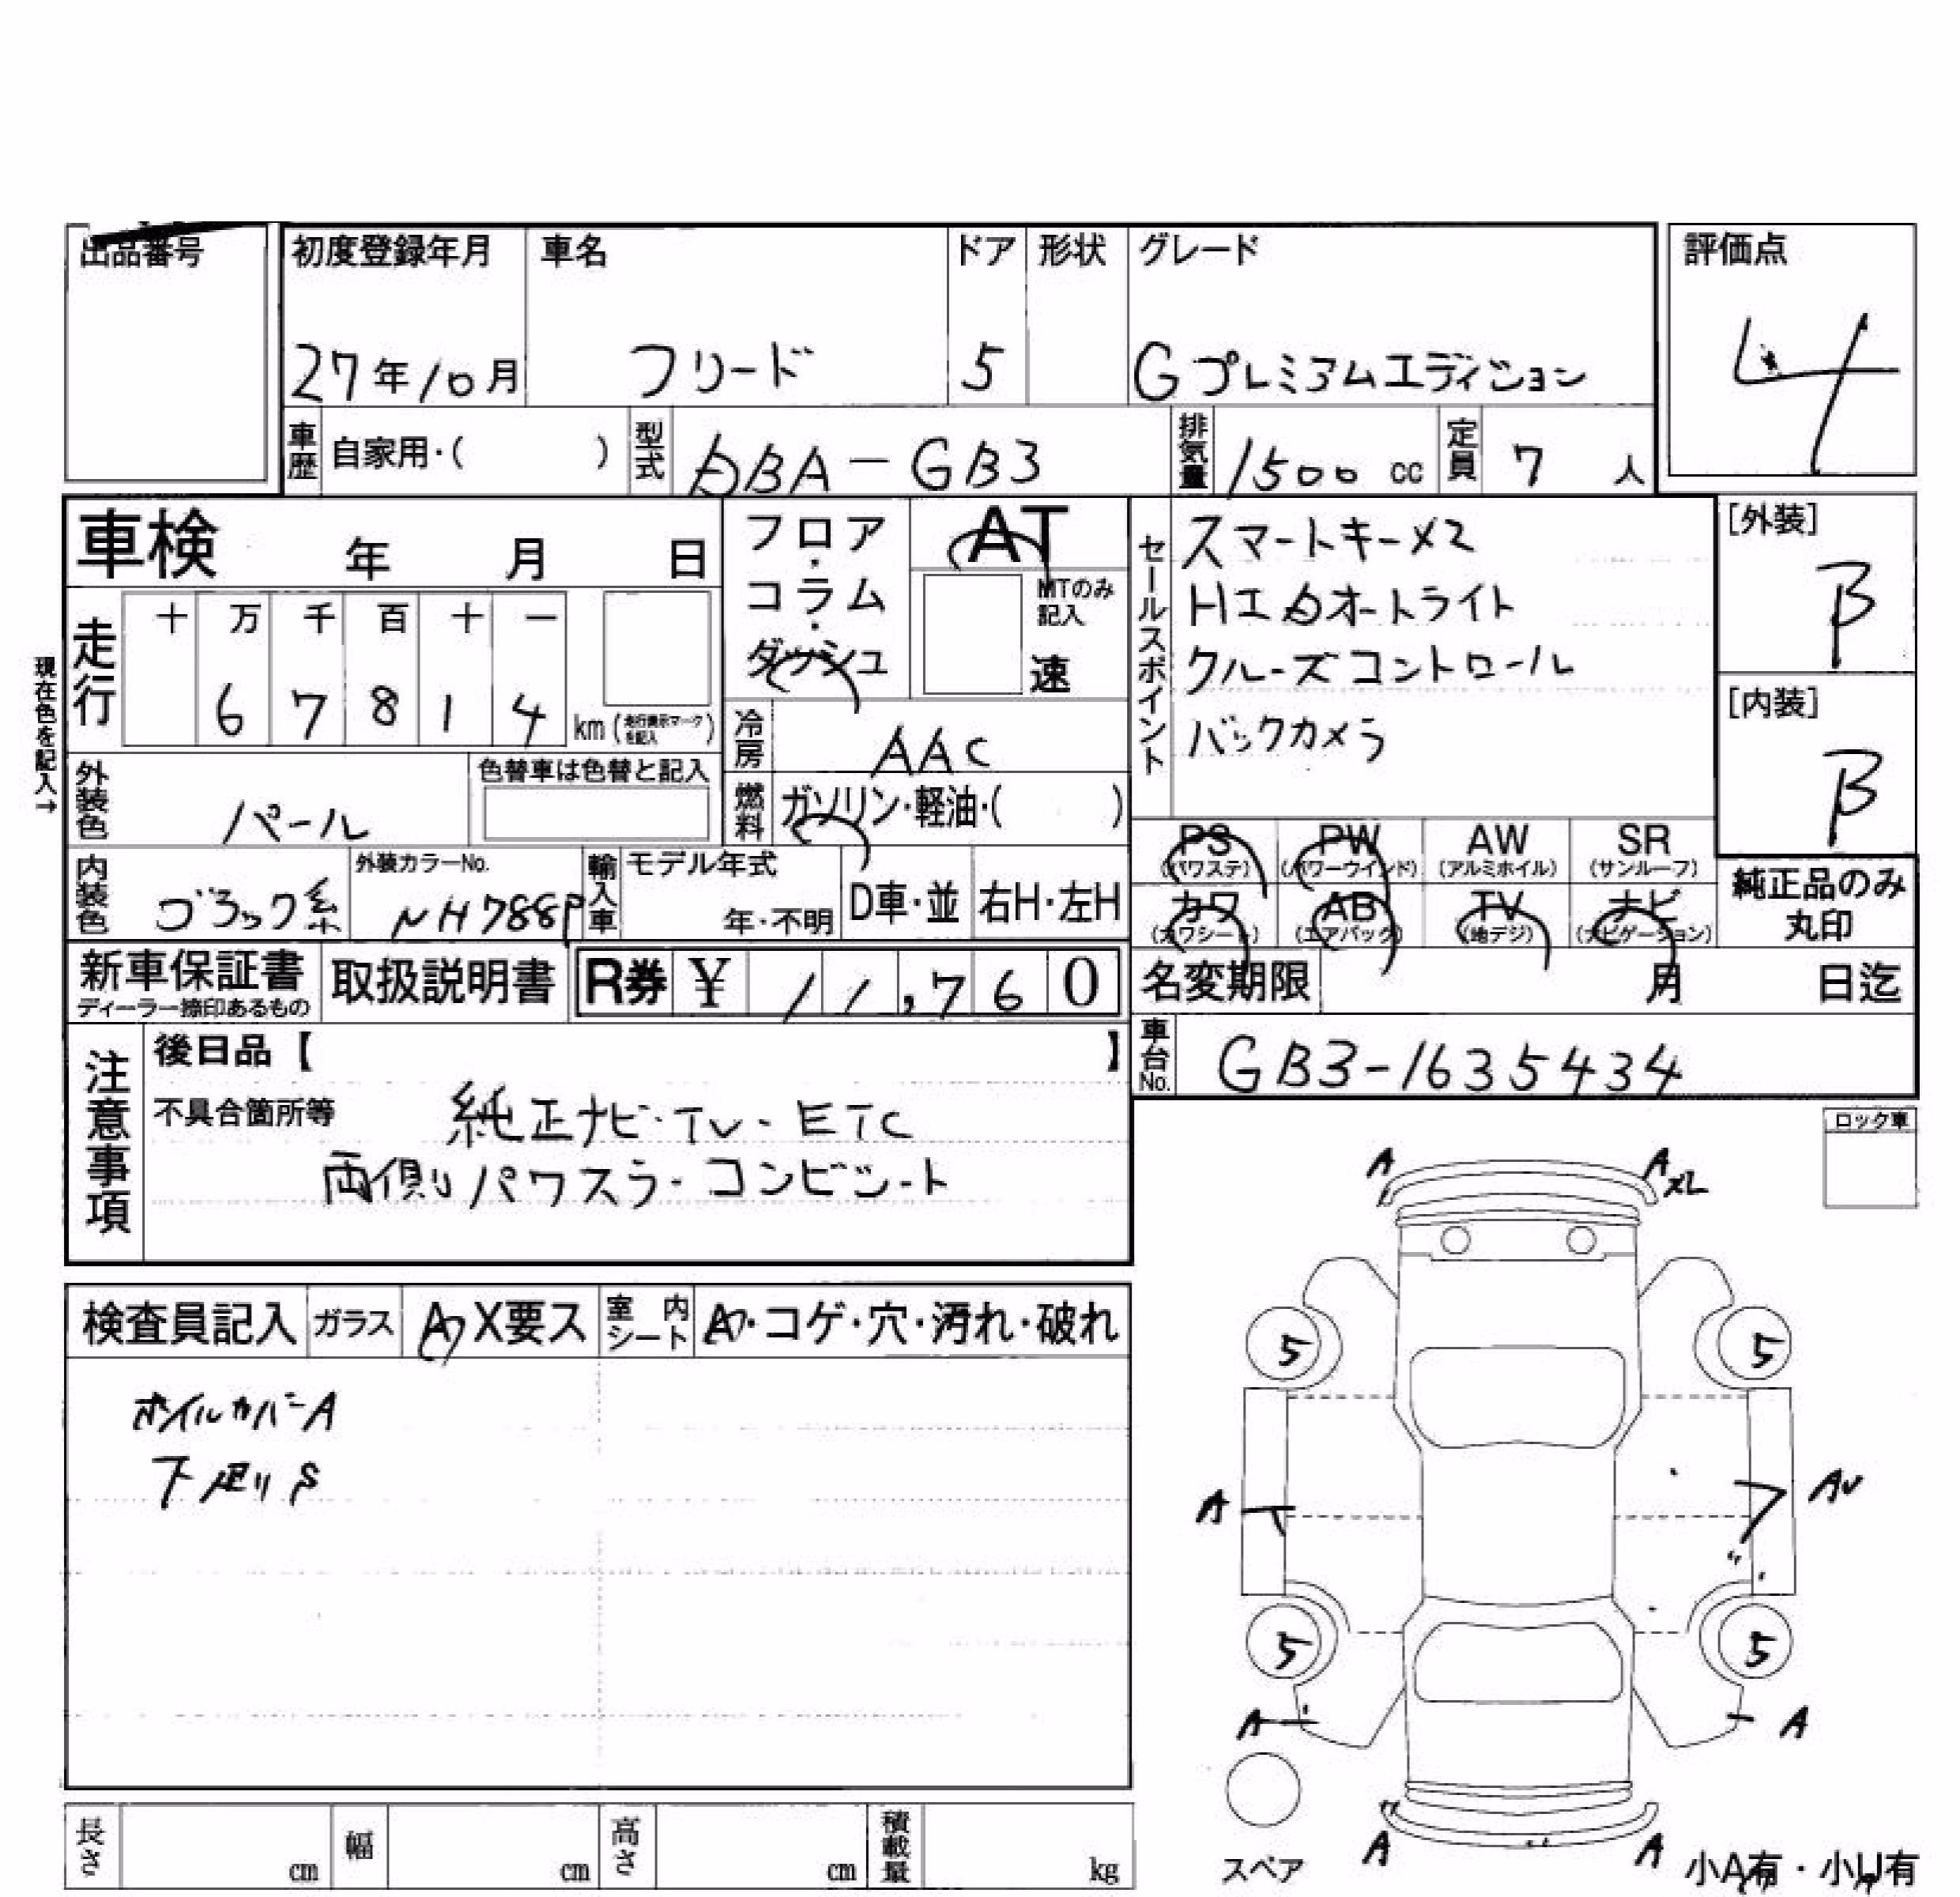 出品番号
初度登録年月 車名 ドア 形状 グレード 評価点
27年10月 フリード 5 Gプレミアムエディション 4
車歴 自家用・( ) 型式 DBA-GB3 排気量 1500 cc 定員 7 人
車検 年 月 日
フロア・コラム・ダッシュ
AT
MTのみ記入
速
セールスポイント
スマートキー×2
HIDオートライト
クルーズコントロール
バックカメラ
[外装]
B
[内装]
B
現在色を記入→
走行 十 万 千 百 十 一
6 7 8 1 4 km (走行表示マークを記入)
冷房 AAC
外装色 パール 色替車は色替と記入
燃料 ガソリン・軽油・( )
PS (パワステ) PW (パワーウインド) AW (アルミホイル) SR (サンルーフ)
内装色 ブラック系 外装カラーNo. NH788P 輸入車 モデル年式 年・不明 D車・並 右H・左H
カワ (カワシート) AB (エアバック) TV (地デジ) ナビ (ナビゲーション)
純正品のみ
丸印
新車保証書 ディーラー捺印あるもの 取扱説明書 R券 ¥ 11,760
名変期限 月 日迄
車台No. GB3-1635434
注意事項
後日品【 】
不具合箇所等 純正ナビ・TV・ETC
両側パワスラ・コンビシート
ロック車
A A XL
検査員記入 ガラス A X要ス 室内シート A・コゲ・穴・汚れ・破れ
5 5
ホイルカバーA
下廻りS
A AU
5 5
A A
スペア
A A
小A有・小U有
長さ cm 幅 cm 高さ cm 積載量 kg